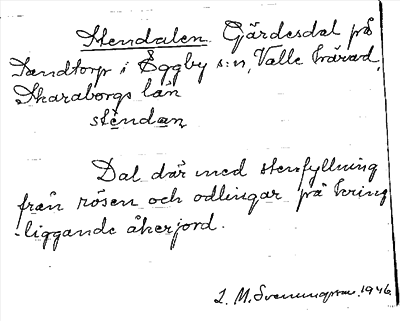 Stendalen Gärdesdal på
Sandtorp i Eggby s:n, Valle härad,
Skaraborgs län
stèndan
Dal där med stenfyllning
från rösen och odlingar på kring
-liggande åkerjord.
L. M. Svenungsson. 1946.